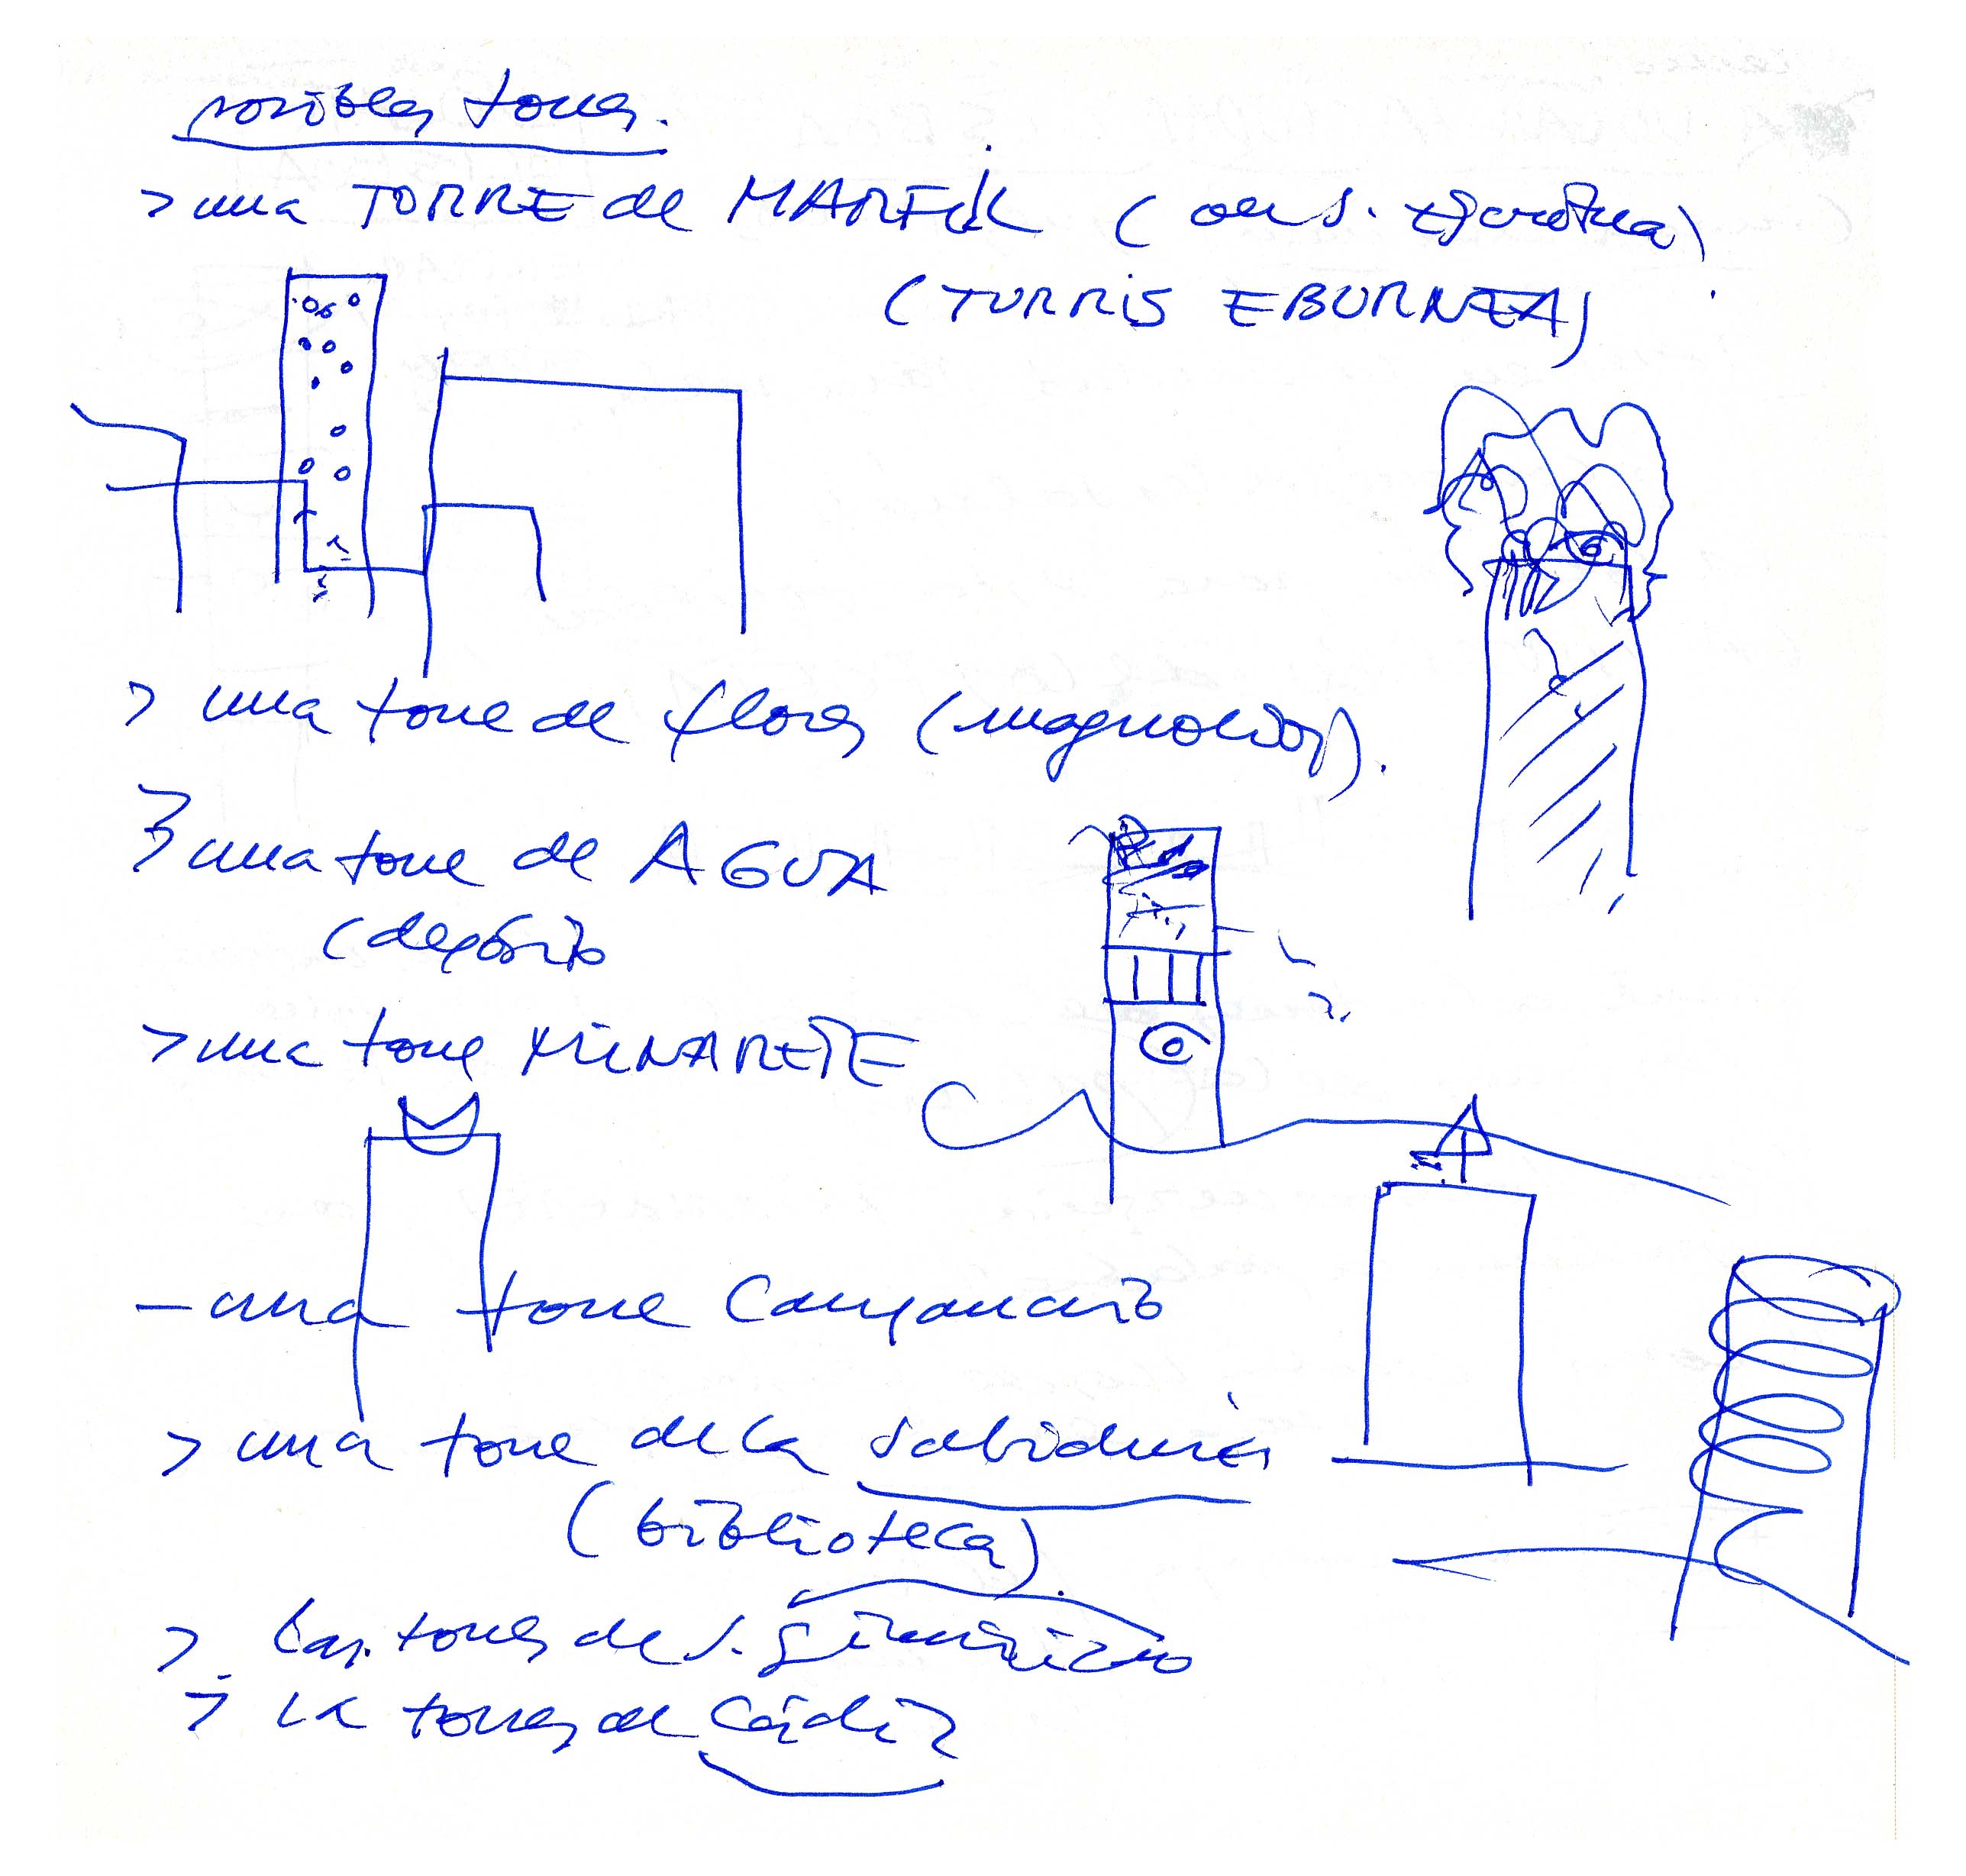 posibles torres.
> una TORRE de MARFIL (
(TURRIS EBURNEA)
> una torre de flores (magnolios).
> una torre de AGUA
(depósito
> una torre MINARETE
- una torre Campanario
> una torre de la sabiduría
(biblioteca).
> Las torres de S. Gimignano
> La torres de Cádiz